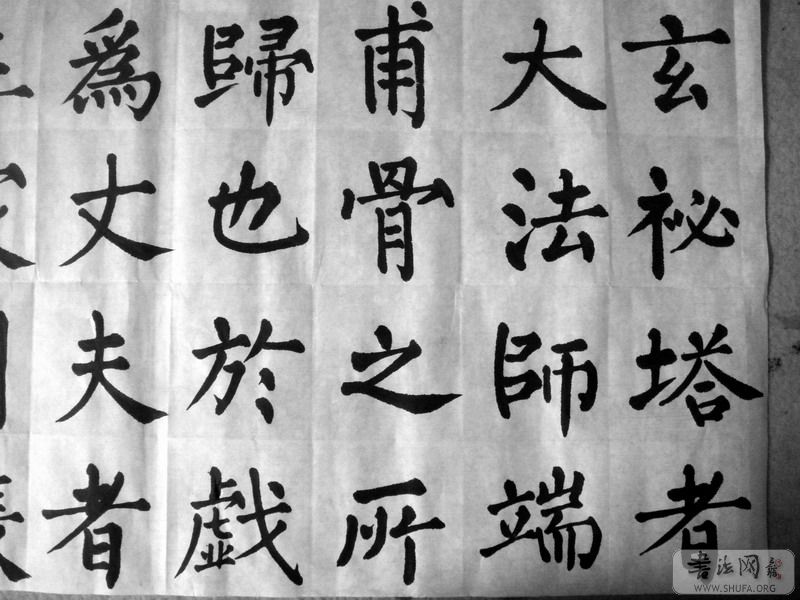 玄祕塔者
大法師端
甫骨之所
歸也於戯
爲丈夫者
書法网
WWW.SHUFA.ORG